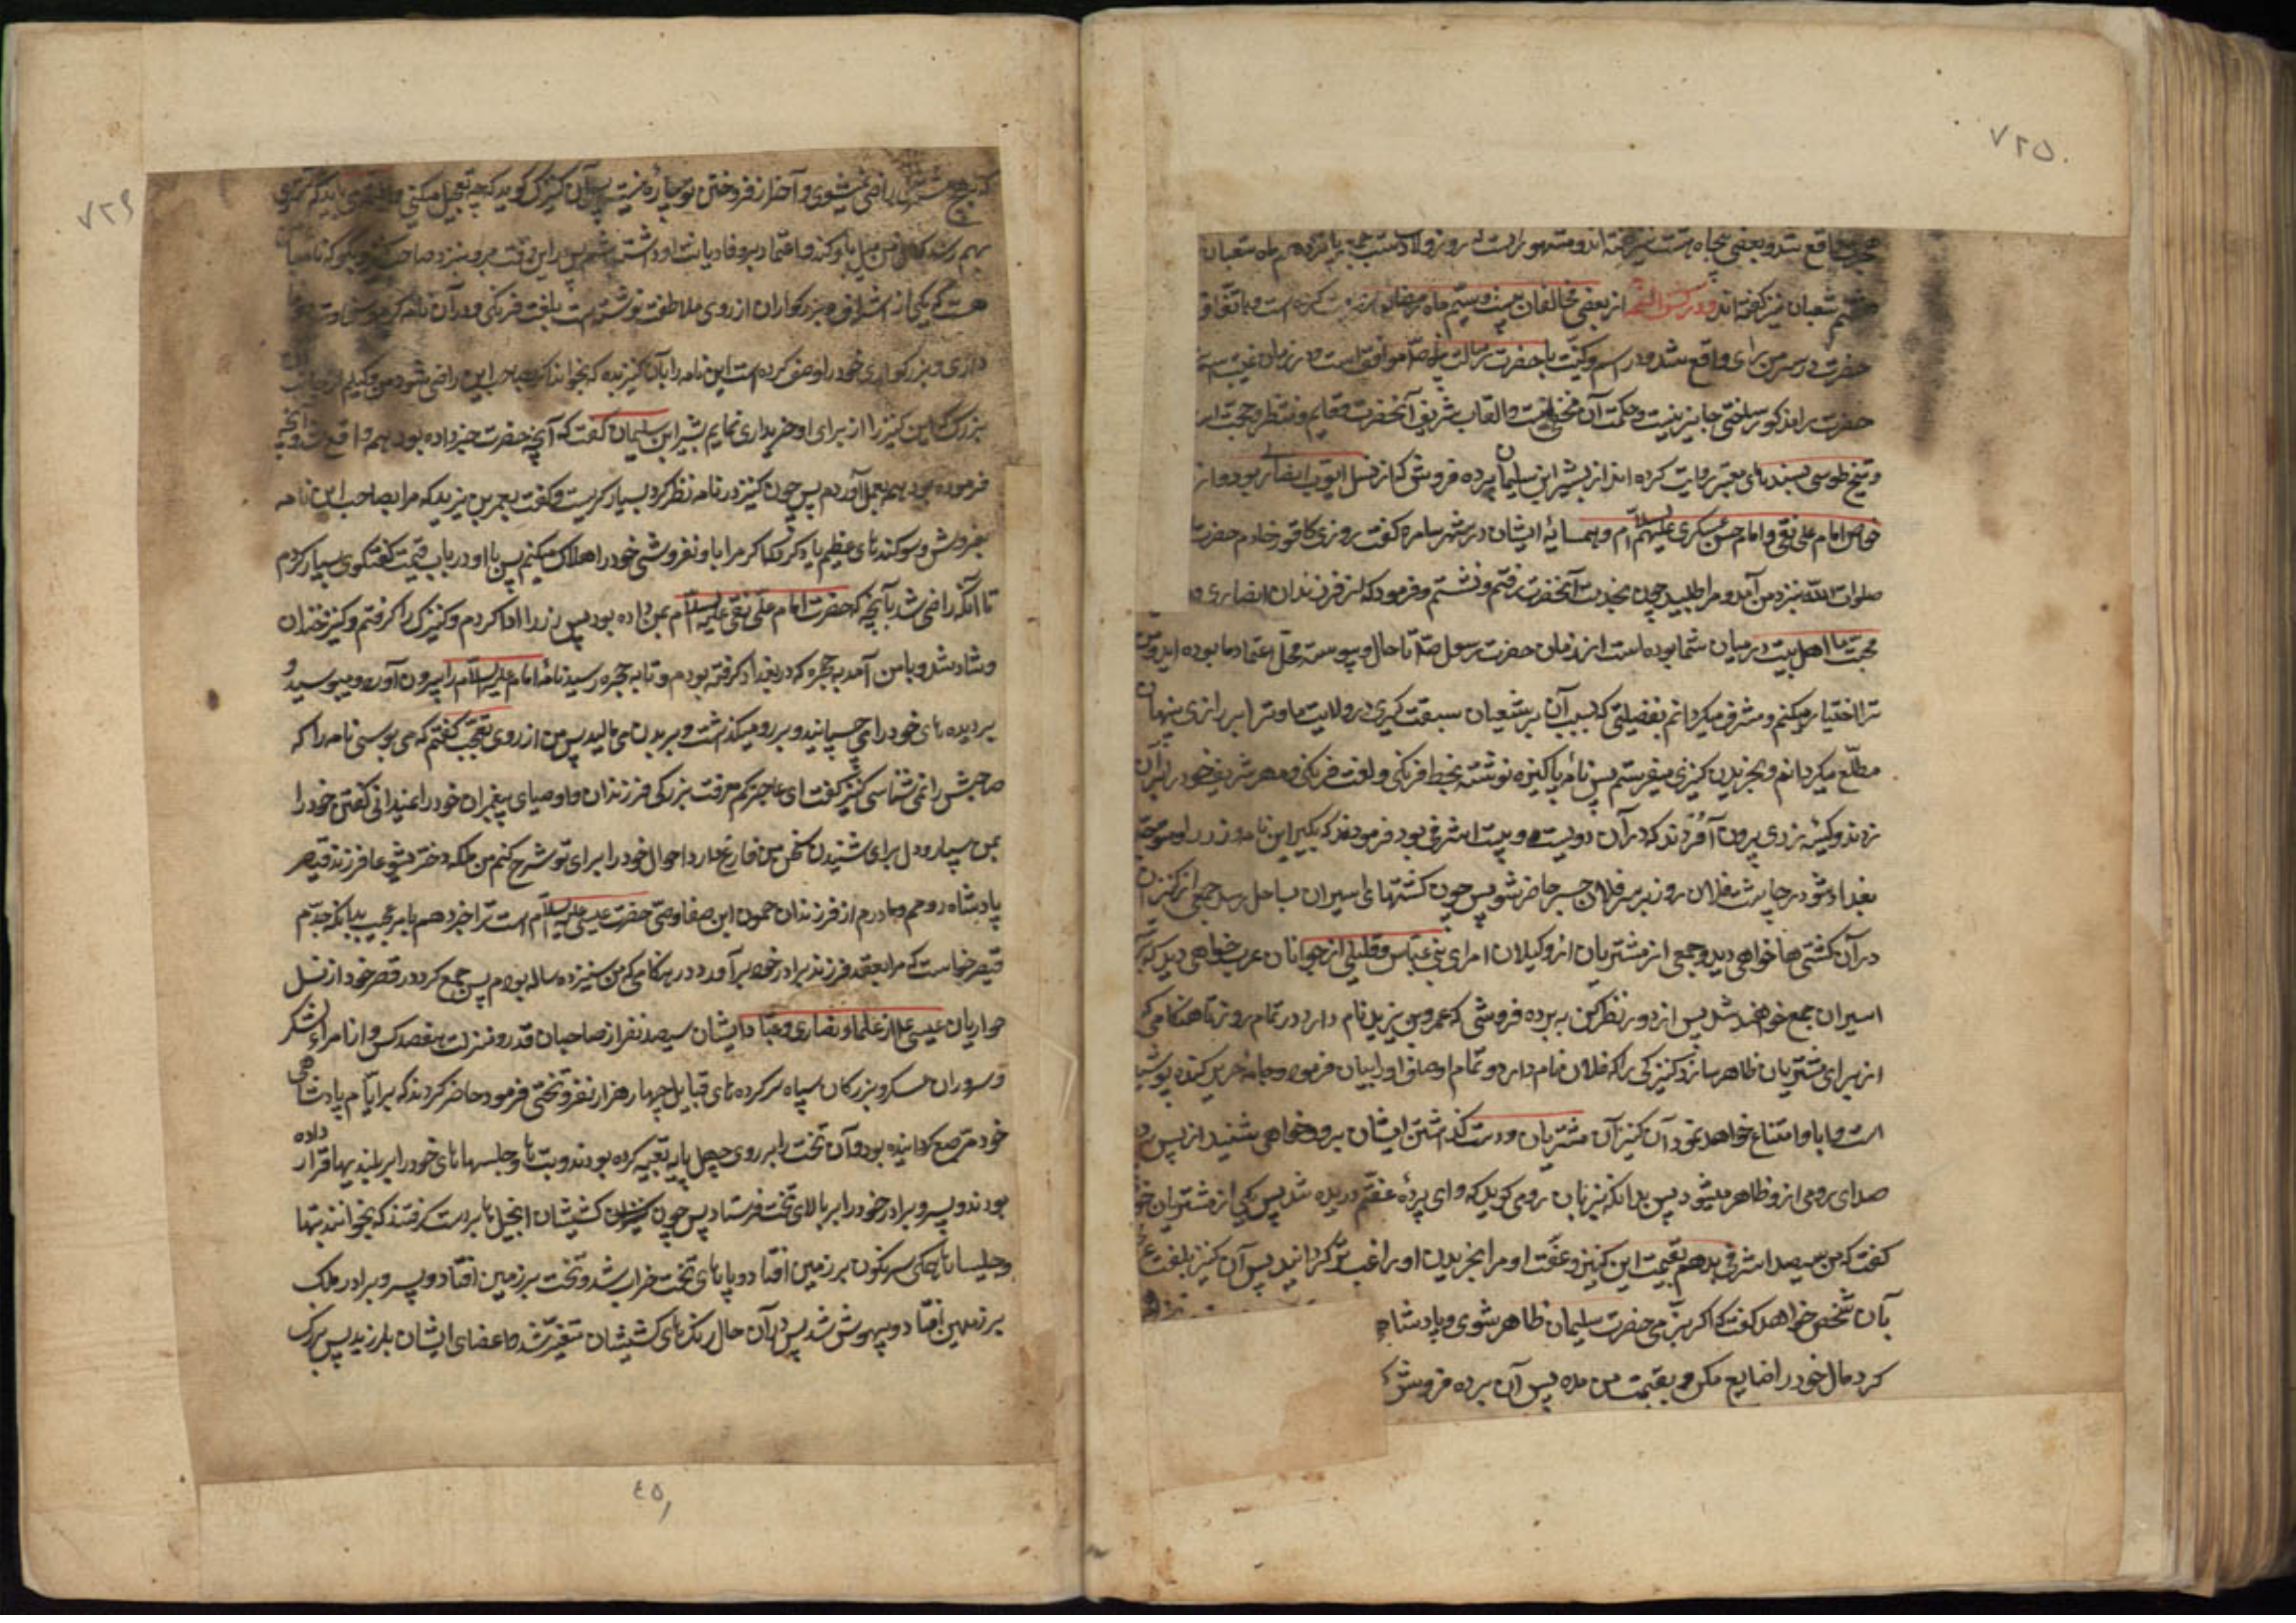 ۷۲۵
هجرت واقع شد و بعضی پنجاه هشت نیز گفته‌اند و مشهور آنست که روز ولادت شب جمعه پانزدهم ماه شعبان
هشتم شعبان نیز گفته‌اند و در کشف الغمه از بعضی مخالفان بیست و سیّم ماه رمضان روایت کرده است و باتّفاق
حضرت در سرمن رای واقع شد و در اسم و کنیت با حضرت رسالت پناه صلّا موافق است و در زمان غیبت اسم
حضرت را مذکور ساختن جایز نیست و حکمت آن مخفیست و القاب شریف آنحضرت و قایم و منتظر و حجت است
و شیخ طوسی بسندهای معتبر روایت کرده‌اند از بشیر ابن سلیمان برده فروش که از نسل ایوب انصاری بود و از
خواص امام علی نقی و امام حسن عسکری علیهم السلام و همسایهٔ ایشان در شهر سامره گفت روزی کافور خادم حضرت
صلوات الله نزد من آمد و مرا طلبید چون بخدمت آنحضرت رفتم و نشستم و فرمود که از فرزندان انصاری و
محبت ما اهل بیت در میان شما بوده است از زمان حضرت رسول صلّا تا حال و پیوسته محل اعتماد ما بوده‌اید و من
ترا اختیار میکنم و مشرف میگردانم بفضیلتی که بسبب آن بر شیعیان سبقت گیری در ولایت ما و ترا بر رازی پنهان
مطلّع میگردانم و بخریدن کنیزی میفرستم پس نامهٔ پاکیزه نوشتند بخط فرنگی و لغت فرنگی و مهر شریف خود بر آن
زدند و کیسهٔ زری بیرون آوردند که در آن دویست و بیست اشرفی بود فرمودند که بگیر این نامه و زر را و متوجه
بغداد شو در چاشت فلان روز بر سر فلان جسر حاضر شو پس چون کشتیهای اسیران بساحل رسد جمعی از کنیزان
در آن کشتی‌ها خواهی دید و جمعی از مشتریان از وکیلان امرای بنی عباس و قلیلی از جوانان عرب خواهی دید که بر
اسیران جمع خواهند شد پس از دور نظر کن به برده فروشی که عمرو بن یزید نام دارد در تمام روز تا هنگامی که
از برای مشتریان ظاهر سازد کنیزکی را که فلان نام دارد و تمام اوصاف او را بیان فرمود و جامهٔ حریر کنده پوشیده
است و ابا و امتناع خواهد نمود آن کنیز آن مشتریان و دست گذاشتن ایشان برو و خواهی شنید از پس پرده
صدای رومی ازو ظاهر میشود پس بدانکه بزبان رومی گوید که وای پردهٔ عفتم دریده شد پس یکی از مشتریان خواهد
گفت که من سیصد اشرفی بدهم بقیمت این کنیز و عفّت او مرا بخریدن او راغب‌تر گردانید پس آن کنیز بلغت عربی
بآن شخص خواهد گفت که اگر بزیّ حضرت سلیمان ظاهر شوی و پادشاهی
کرد مال خود را ضایع مکن و بقیمت من مده پس آن برده فروش
۷۲۶
که بهیچ مشتری راضی نمیشوی و آخر از فروختن تو چاره نیست پس آن کنیزک گوید که چه تعجیل میکنی باید که مشتری
بهم رسد که دل من میل باو کند و اعتماد برو فا و دیانت او داشته باشم پس در این وقت برو بنزد صاحب کنیز و بگو که نامهٔ با من
هست که یکی از اشراف و بزرگواران از روی ملاطفت نوشته است بلغت فرنگی و در آن نامه کرم و سخاوت و وفا
داری و بزرگواری خود را وصف کرده است این نامه را بآن کنیز بده که بخواند اگر بصاحب این راضی شود من وکیلم از جانب آن
بزرگ که این کنیز را از برای او خریداری نمایم بشیر ابن سلیمان گفت که آنچه حضرت خبر داده بود همه واقع شد و آنچه
فرموده بود همه بعمل آوردم پس چون کنیز در نامه نظر کرد بسیار گریست و گفت بعمر بن یزید که مرا بصاحب این نامه
بفروش و سوگندهای عظیم یاد کرد که اگر مرا باو نفروشی خود را هلاک میکنم پس با او در باب قیمت گفتگوی بسیار کردم
تا آنکه راضی شد بآنچه که حضرت امام علی نقی علیه السلام بمن داده بود پس زر را ادا کردم و کنیزک را گرفتم و کنیز خندان
و شاد شد و با من آمد به حجره که در بغداد گرفته بودم و تا به حجره رسید نامهٔ امام علیه السلام را بیرون آورد و میبوسید و
بر دیده‌های خود را می‌چسپانید و بر رو میگذاشت و بر بدن می‌مالید پس من از روی تعجب گفتم که می بوسی نامه را که
صاحبش را نمی شناسی کنیز گفت ای عاجز کم معرفت بزرگی فرزندان و اوصیای پیغمبران خود را نمیدانی گفتن خود را
بمن بسپار و دل برای شنیدن سخن من فارغ دار تا احوال خود را برای تو شرح کنم من ملیکه دختر یشوعا فرزند قیصر
پادشاه روم و مادرم از فرزندان حمون ابن صفا وصی حضرت عیسی علیه السلام است ترا خبر دهم بامر عجیب بدانکه جدّم
قیصر خواست که مرا بعقد فرزند برادر خود برآورد در هنگامی که من سیزده ساله بودم پس جمع کرد در قصر خود از نسل
حواریان عیسی ع و از علماء نصاری و عبّاد ایشان سیصد نفر از صاحبان قدر و منزلت هفصد کس و از امراء لشکر
و سروران عسکر و بزرگان سپاه و سرکرده‌های قبایل چهار هزار نفر و تختی فرمود حاضر کردند که در ایّام پادشاهی
خود مرّصع گردانیده بود و آن تخت را بر روی چهل پایه تعبیه کرده بودند و بت‌ها و چلیسهاهای خود را بر بلندیها قرار داده
بودند و پسر برادر خود را بر بالای تخت فرستاد پس چون کشیشان انجیل‌ها بر دست گرفتند که بخوانند بتها
و چلیساها همگی سرنگون بر زمین افتاد و پاهای تخت خراب شد و تخت بر زمین افتاد و پسر برادر ملک
بر زمین افتاد و بیهوش شد پس در آن حال رنگ‌های کشیشان متغیّر شد و اعضای ایشان بلرزید پس بزرگ